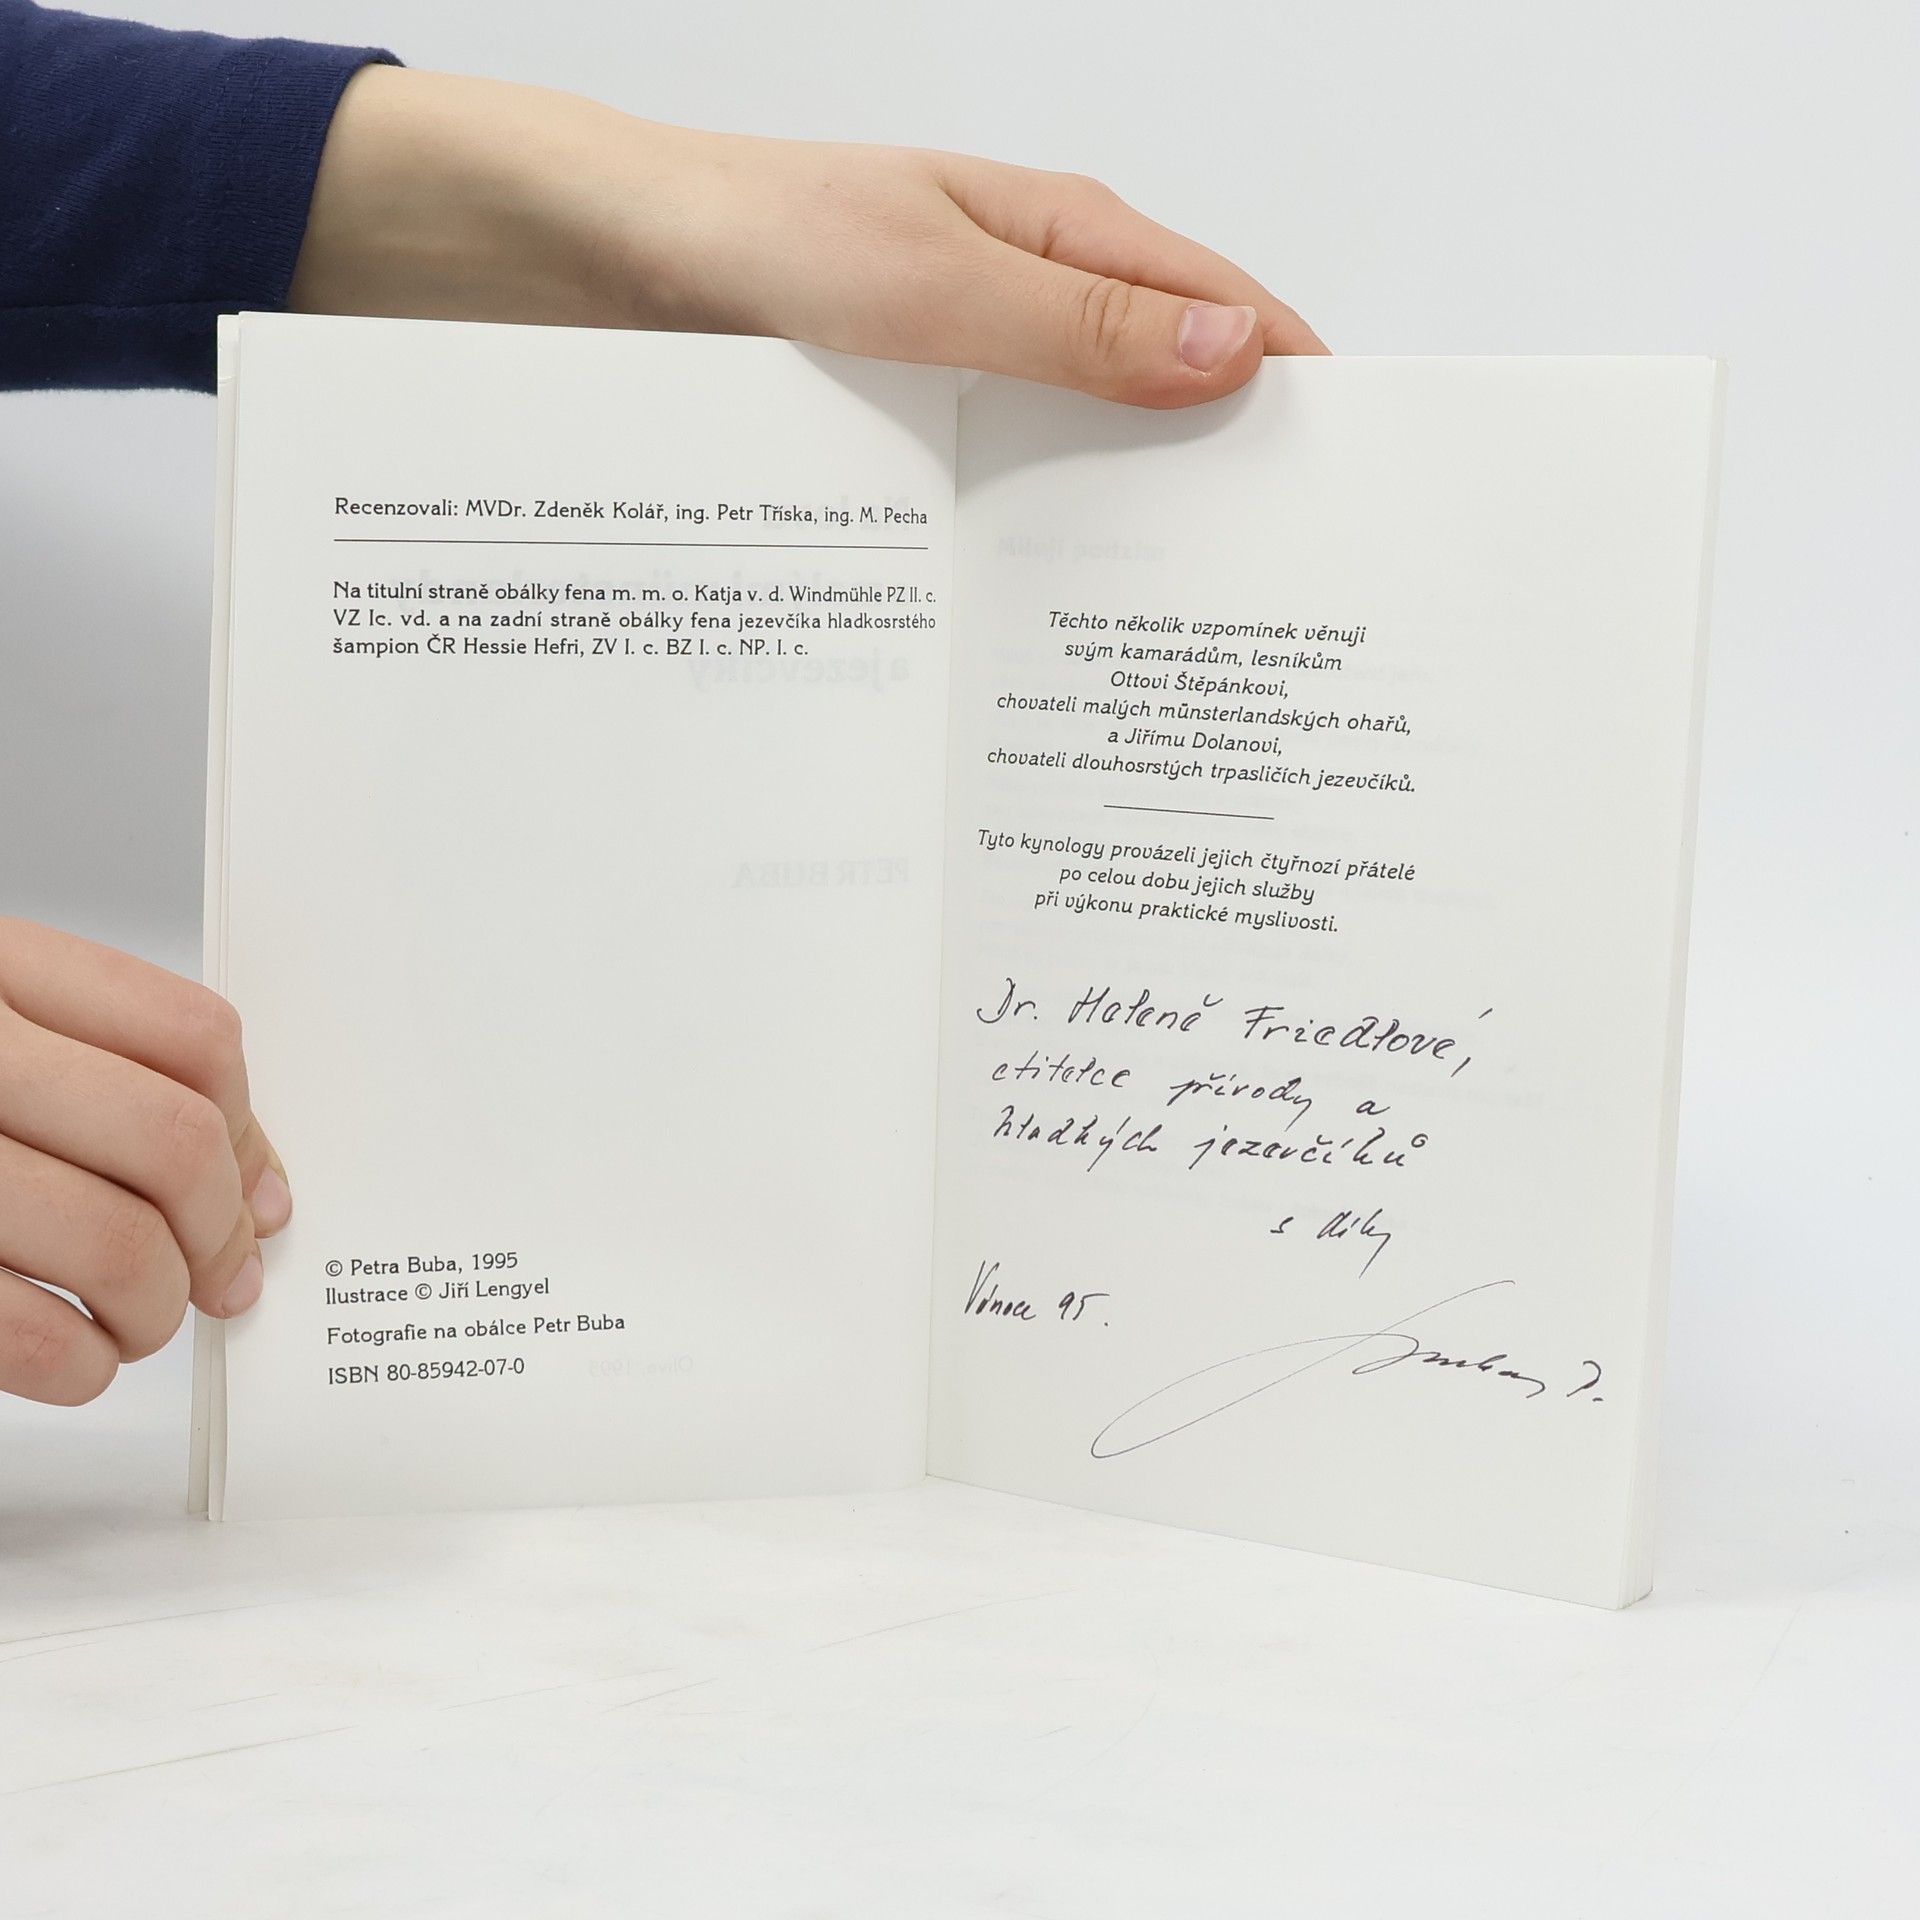 Recenzovali: MVDr. Zdeněk Kolář, ing. Petr Tříska, ing. M. Pecha
Na titulní straně obálky fena m. m. o. Katja v. d. Windmühle PZ II. c.
VZ Ic. vd. a na zadní straně obálky fena jezevčíka hladkosrstého
šampion ČR Hessie Hefri, ZV I. c. BZ I. c. NP. I. c.
© Petra Buba, 1995
Ilustrace © Jiří Lengyel
Fotografie na obálce Petr Buba
ISBN 80-85942-07-0
Těchto několik vzpomínek věnuji
svým kamarádům, lesníkům
Ottovi Štěpánkovi,
chovateli malých münsterlandských ohařů,
a Jiřímu Dolanovi,
chovateli dlouhosrstých trpasličích jezevčíků.
Tyto kynology provázeli jejich čtyřnozí přátelé
po celou dobu jejich služby
při výkonu praktické myslivosti.
Dr. Heleně Friedlové,
ctitelce přírody a
hladkých jezevčíků
s díky
Vánoce 95.